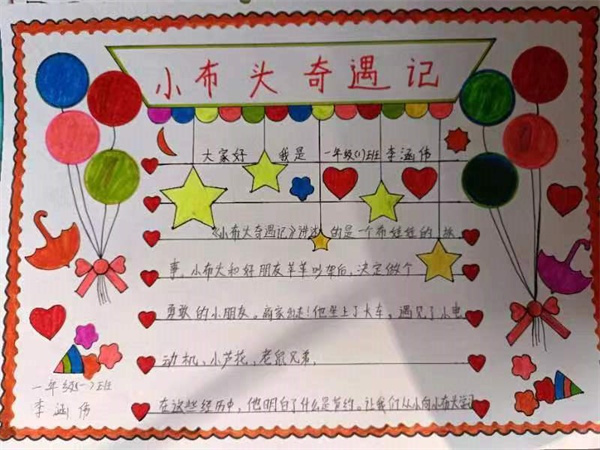 小布头奇遇记
大家好 我是 一年级(1)班 李涵伟
《小布头奇遇记》讲述的是一个布娃娃的故
事。小布头和好朋友苹苹吵架后，决定做个
勇敢的小朋友。离家出走！他坐上了大车，遇见了小电
动机、小芦花、老鼠兄弟，
在这些经历中，他明白了什么是节约。让我们从小向小布头学习
一年级(一)班
李涵伟